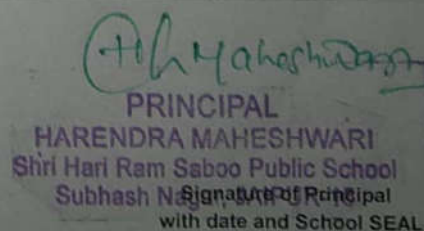 H Maheshwari
PRINCIPAL
HARENDRA MAHESHWARI
Shri Hari Ram Saboo Public School
Subhash Nagar, JAIPUR-16
Signature of Principal
with date and School SEAL